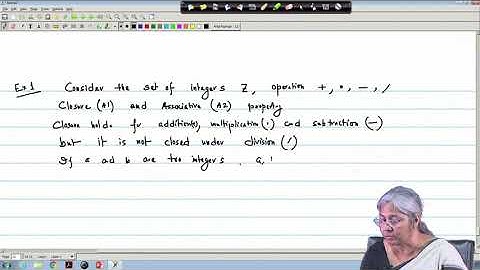 Ex 1 Consider the set of integers Z, operation +, •, −, /
Closure (A1) and Associative (A2) property
Closure holds for addition(+), multiplication (•) and subtraction (−)
but it is not closed under division (/)
If a ad b are two integers, a,